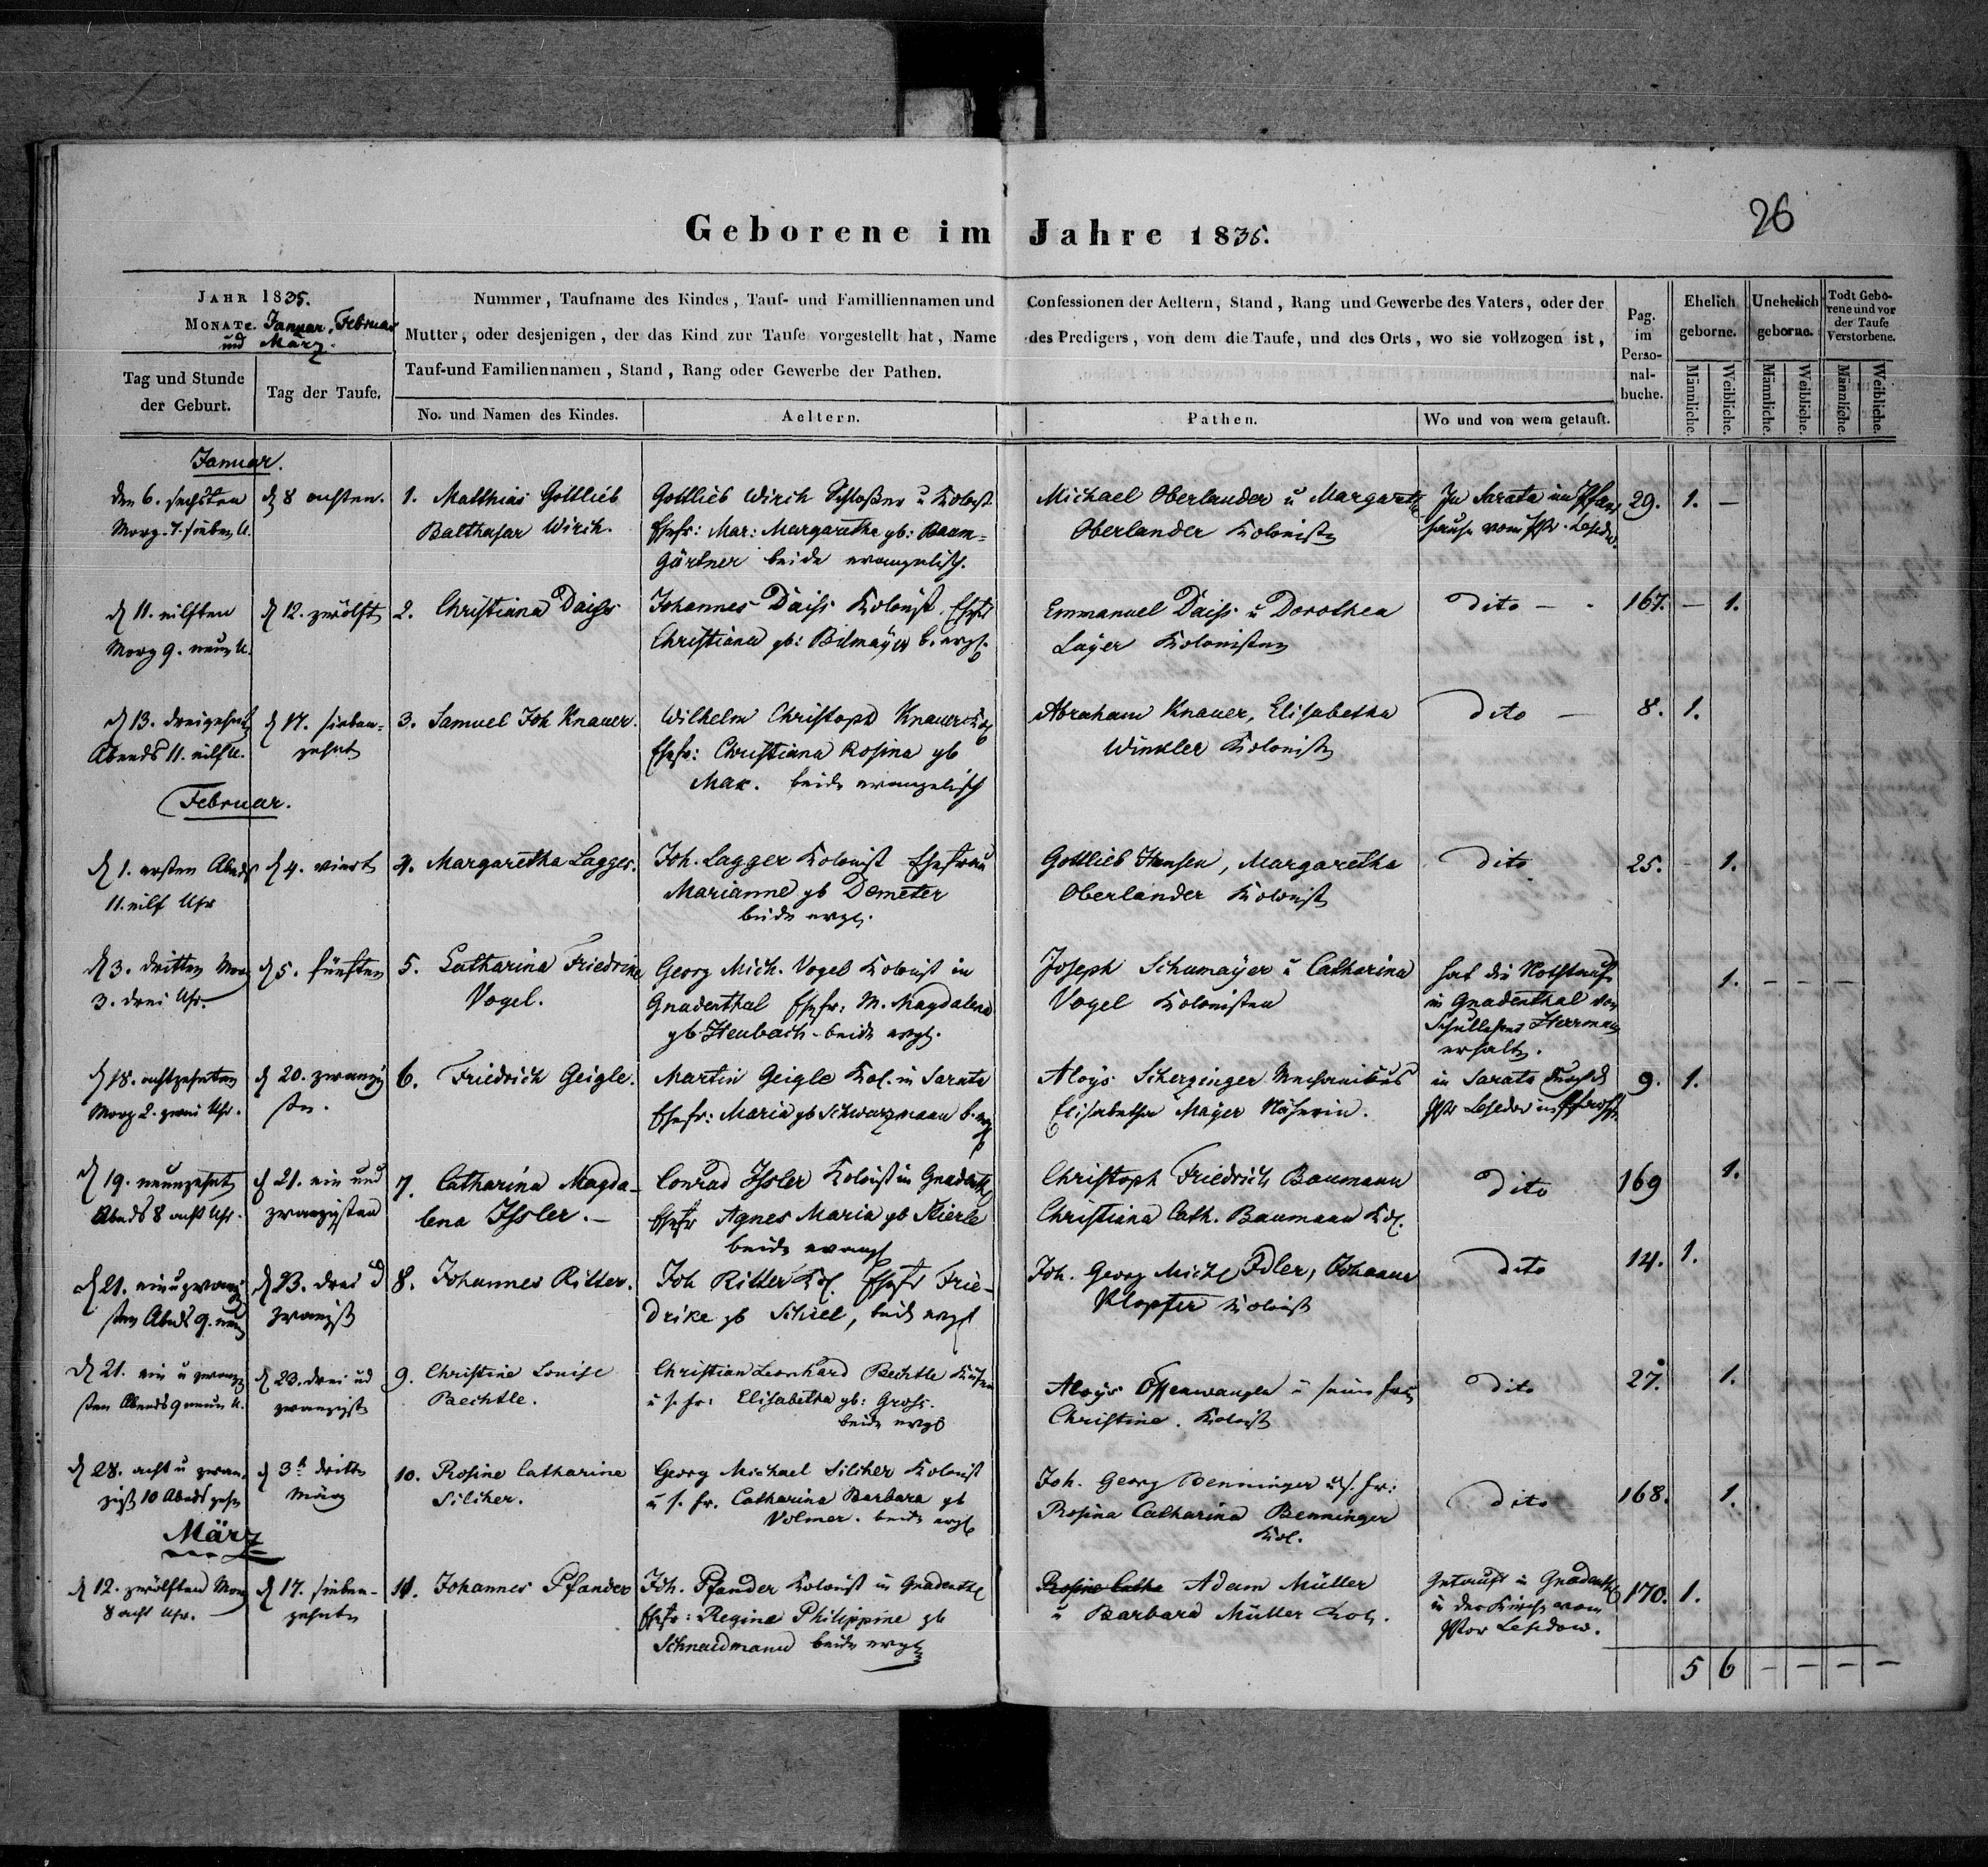 26
Geborene im Jahre 1835.
JAHR 1835.
MONATE. Januar, Februar
und März.
Nummer, Taufname des Kindes, Tauf- und Familliennamen und Confessionen der Aeltern, Stand, Rang und Gewerbe des Vaters, oder der
Mutter, oder desjenigen, der das Kind zur Taufe vorgestellt hat, Name des Predigers, von dem die Taufe, und des Orts, wo sie vollzogen ist,
Tauf-und Familiennamen, Stand, Rang oder Gewerbe der Pathen.
Tag und Stunde
der Geburt.
Tag der Taufe.
No. und Namen des Kindes.
Aeltern.
Pathen.
Wo und von wem getauft.
Pag.
im
Perso-
nal-
buche.
Ehelich
geborne.
Unehelich
geborne.
Todt Gebo-
rene und vor
der Taufe
Verstorbene.
Männliche.
Weibliche.
Männliche.
Weibliche.
Männliche.
Weibliche.
Januar.
den 6. sechsten
Morg. 7. sieben U.
d 8 achten.
1. Matthias Gottlieb
Balthasar Wirch.
Gottlieb Wirch Schloßer u Kolonist
Ehefr: Mar: Margaretha gb: Baum=
gärtner beide evangelisch.
Michael Oberlander u Margaretha
Oberlander Kolonisten
In Sarata im Pfarr
hause vom
29.
1. –
d 11. eilften
Morg 9. neun U.
d 12. zwölft
2. Christiana Daiss
Johannes Daiss Kolonist. Ehefr
Christiana gb: Bilmayer b. evgl.
Emmanuel Daiss u Dorothea
Layer Kolonisten
Dito –
167.
– 1.
d 13. dreizehnt
Abends 11. eilf U.
d 17. sieben=
zehnt
3. Samuel Joh Knauer.
Wilhelm Christoph Knauer Kol
Ehefr: Christiana Rosina gb
Max. beide evangelisch
Abraham Knauer, Elisabetha
Winkler Kolonist
Dito –
8.
1.
Februar.
d 1. ersten Abends
11. eilf Uhr
d 4. viert
4. Margaretha Lagger.
Joh. Lagger Kolonist Ehefrau
Marianne gb Demeter
beide evgl.
Gottlieb Hansen, Margaretha
Oberlander Kolonist
Dito
25.
– 1.
d 3. dritten Mor
3. drei Uhr.
d 5. fünften
5. Catharina Friedrike
Vogel.
Georg Mich. Vogel Kolonist in
Gnadenthal Ehefr: M. Magdalena
gb Heubach beide evgl.
Joseph Schumayer u Catharina
Vogel Kolonisten
hat die Nothtaufe
in Gnadenthal von
Schullehrer Herrmann
erhalten.
1. – – –
d 18. achtzehnten
Morg 2. zwei Uhr.
d 20. zwanzig
sten.
6. Friedrich Geigle.
Martin Geigle Kol. in Sarata
Ehefr: Maria gb Schwarzmann b. evgl
Aloys Scherzinger Mechanikus
Elisabetha Mayer Näherin.
in Sarata durch
9.
1.
d 19. neunzehnt
Abends 8 acht Uhr.
d 21. ein und
zwanzigsten
7. Catharina Magda-
lena Issler. –
Conrad Issler Kolonist in Gnadenthl
Ehefr Agnes Maria gb Kierle
beide evangl
Christoph Friedrich Baumann
Christiana Cath. Baumann Kol.
Dito
169
1.
d 21. ein u zwanzig
sten Abends 9. neun
d 23. drei u
zwanzigst
8. Johannes Ritter.
Joh Ritter Kol. Ehefr Frie-
drike gb Schiel, beide evgl
Joh. Georg Michl Idler, Johann
Klopfer Kolonist
Dito
14.
1.
d 21. ein u zwanzig
sten Abends 9 neun U.
d 23. drei und
zwanzigst
9. Christine Louise
Baechtle.
Christian Leonhard Bechtle
u s. fr: Elisabetha gb: Gross.
beide evgl
Aloys Offenwanger u seine frau
Christine. Kolonist
Dito
27.
1.
d 28. acht u zwan-
zigst 10 Abends zehn
d 3t dritten
März
10. Rosine Catharine
Silcher.
Georg Michael Silcher Kolonist
u s. fr. Catharina Barbara gb
Volmer. beide evgl
Joh. Georg Benninger u s. fr:
Rosina Catharina Benninger
Kol.
Dito
168.
1.
März
d 12. zwölften Morg
8 acht Uhr.
d 17. sieben-
zehnten
11. Johannes Pfander
Joh. Pfander Kolonist in Gnadenthl
Ehefr: Regina Philippine gb
Schnaidmann beide evgl
Rosine Catha Adam Müller
u Barbara Müller Kol.
Getauft in Gnadenthl
in der Kirche vom
170.
1.
5 6 – – – –